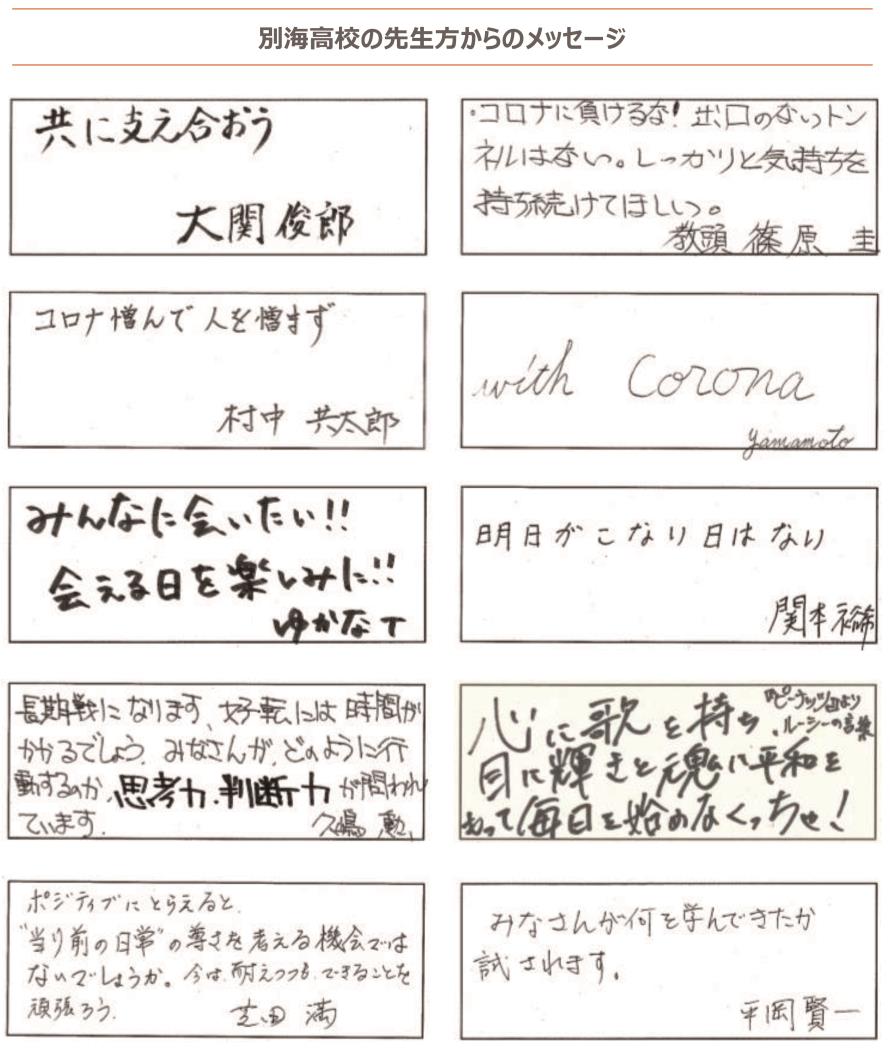 別海高校の先生方からのメッセージ
共に支え合おう
大関俊郎
・コロナに負けるな!出口のないトン
ネルはない。しっかりと気持ちを
持ち続けてほしい。
教頭 篠原 圭
コロナ憎んで人を憎まず
村中 共太郎
with Corona
yamamoto
みんなに会いたい!!
会える日を楽しみに!!
ゆかなT
明日がこない日はない
関本裕希
長期戦になります、好転には時間が
かかるでしょう。みなさんが、どのように行
動するのか、思考力、判断力が問われ
ています。
久嶋 勲
『ピーナッツ』より
ルーシーの言葉
心に歌を持ち、
目に輝きと魂に平和を
もって毎日を始めなくっちゃ!
ポジティブにとらえると、
"当り前の日常"の尊さを考える機会では
ないでしょうか。今は、耐えつつも、できることを
頑張ろう。
芝田 満
みなさんが何を学んできたか
試されます。
平岡賢一